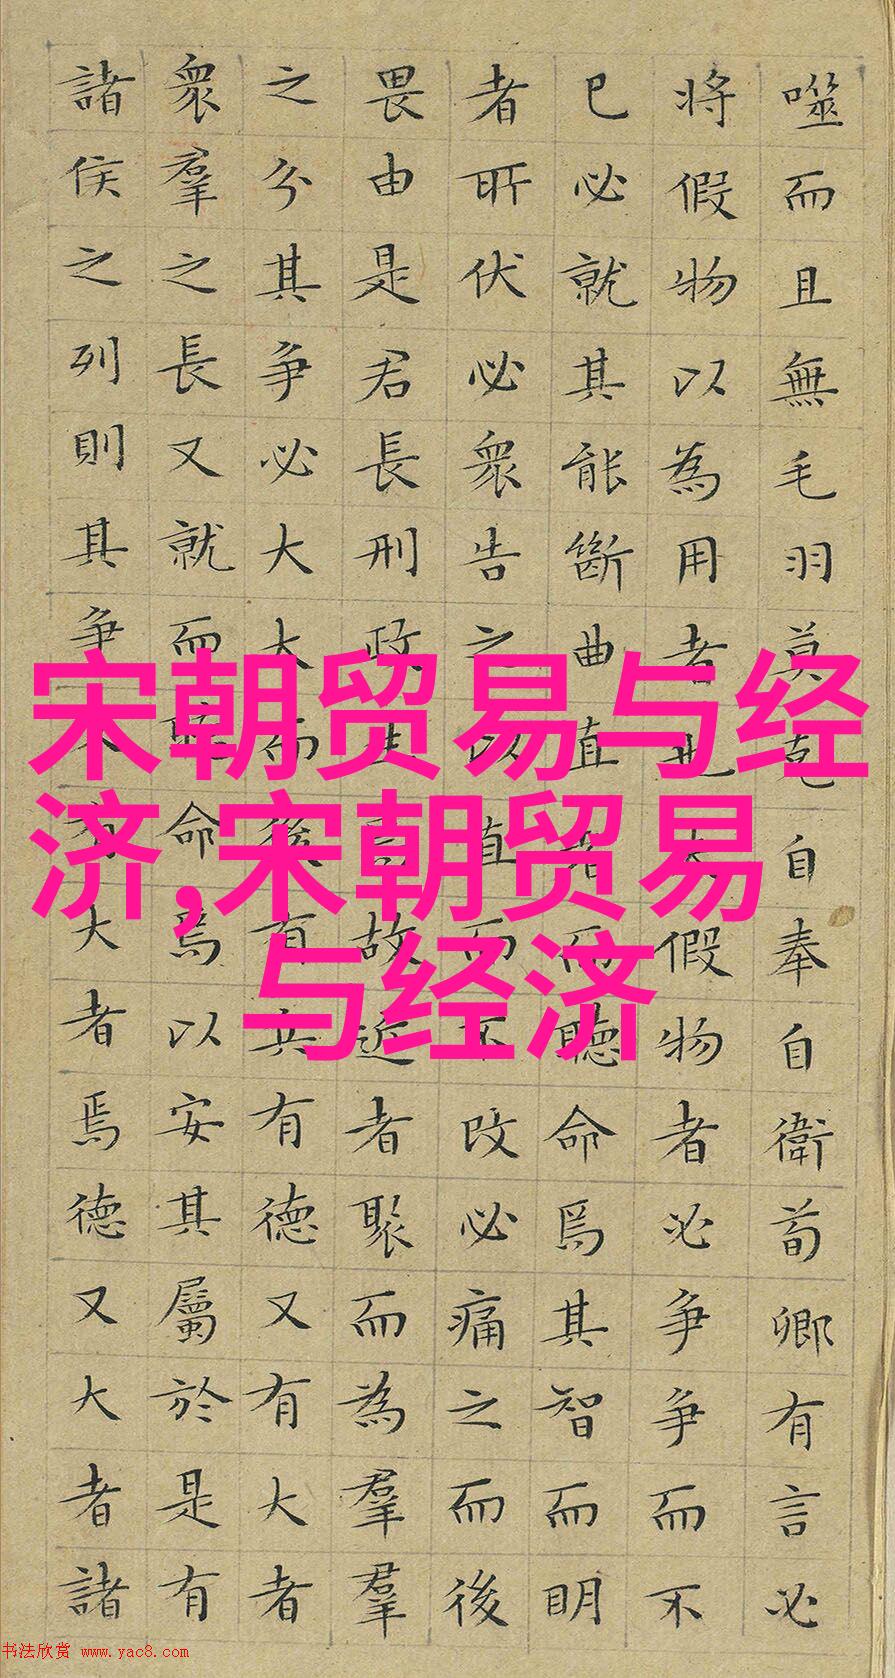 噬而且無毛羽莫克自奉自衛荀卿有言必
將假物以為用者也假物者必争争而不
已必就其能斷曲直者而聽命焉其智而明
者所伏必衆告之以直而不改必痛之而後
畏由是君長刑政生故近者聚而為羣羣
之分其争必大大而後有兵有德又有大者
衆羣之長又就而命焉以安其屬於是有
諸侯之列則其争有大者焉德又大者諸
宋朝贸易与经
济,宋朝贸易
与经济
书法欣赏 www.yac8.com